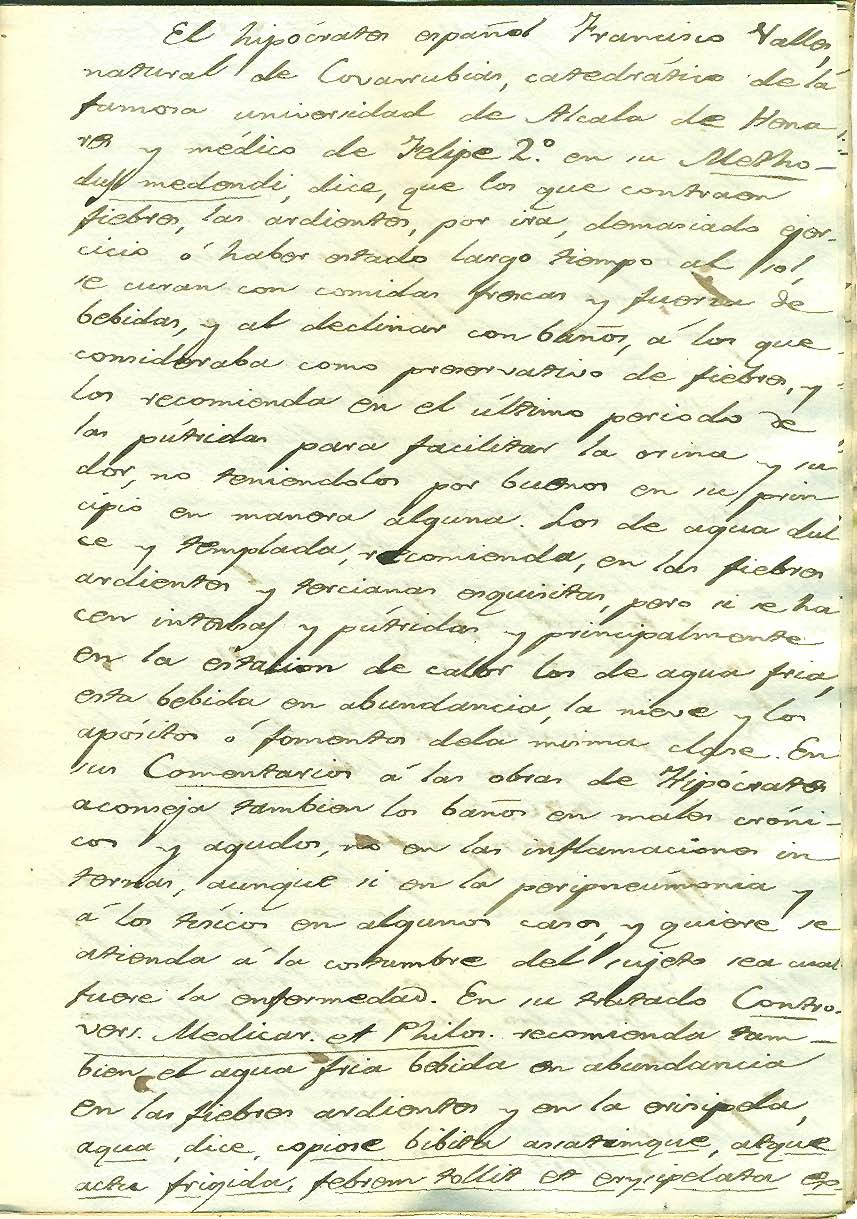 El hipócrates español Francisco Valles,
natural de Covarrubias, catedrático de la
famosa universidad de Alcala de Hena
res y médico de Felipe 2.º en su Metho-
dus medendi, dice, que los que contraen
fiebres, las ardientes, por ira, demasiado ejer-
cicio ó haber estado largo tiempo al sol,
se curan con comidas frescas y fuerza de
bebidas, y al declinar con baños, á los que
consideraba como preservativo de fiebres, y
los recomienda en el último periodo de
las pútridas para facilitar la orina y su
dor, no teniendolos por buenos en su prin
cipio en manera alguna. Los de agua dul
ce y templada, recomienda, en las fiebres
ardientes y tercianas esquisitas, pero si se ha
cen intensas y pútridas y principalmente
en la estacion de calor los de agua fria,
esta bebida en abundancia, la nieve y los
apósitos ó fomentos dela misma clase. En
sus Comentarios á las obras de Hipócrates
aconseja tambien los baños en males cróni-
cos y agudos, no en las inflamaciones in
ternas, aunque si en la peripneumonia y
á los tísicos en algunos casos, y quiere se
atienda á la costumbre del sujeto sea cual
fuere la enfermedad. En su tratado Contro-
vers. Medicar. et Philos. recomienda tam-
bien el agua fria bebida en abundancia
en las fiebres ardientes y en la erisipela,
agua, dice, copiose bibita assatimque, atque
actu frigida, febrem tollit et erysipelata